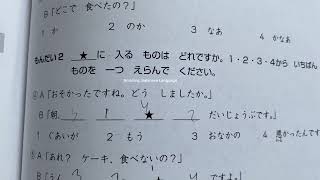 B「どこで 食べたの?」
1 か 2 のか 3 なあ 4 かなあ
もんだい2 ★ に 入る ものは どれですか。1・2・3・4から いちばん
ものを 一つ えらんで ください。
Amazing Japanese Language
④A「おそかったですね。どう しましたか。」
B「朝、3 1 ★2 4 だいじょうぶです。」
1 ぐあいが 2 もう 3 おなかの 4 悪かったんです
⑤A「あれ? ケーキ、食べないの?」
B「うん ですよ。」